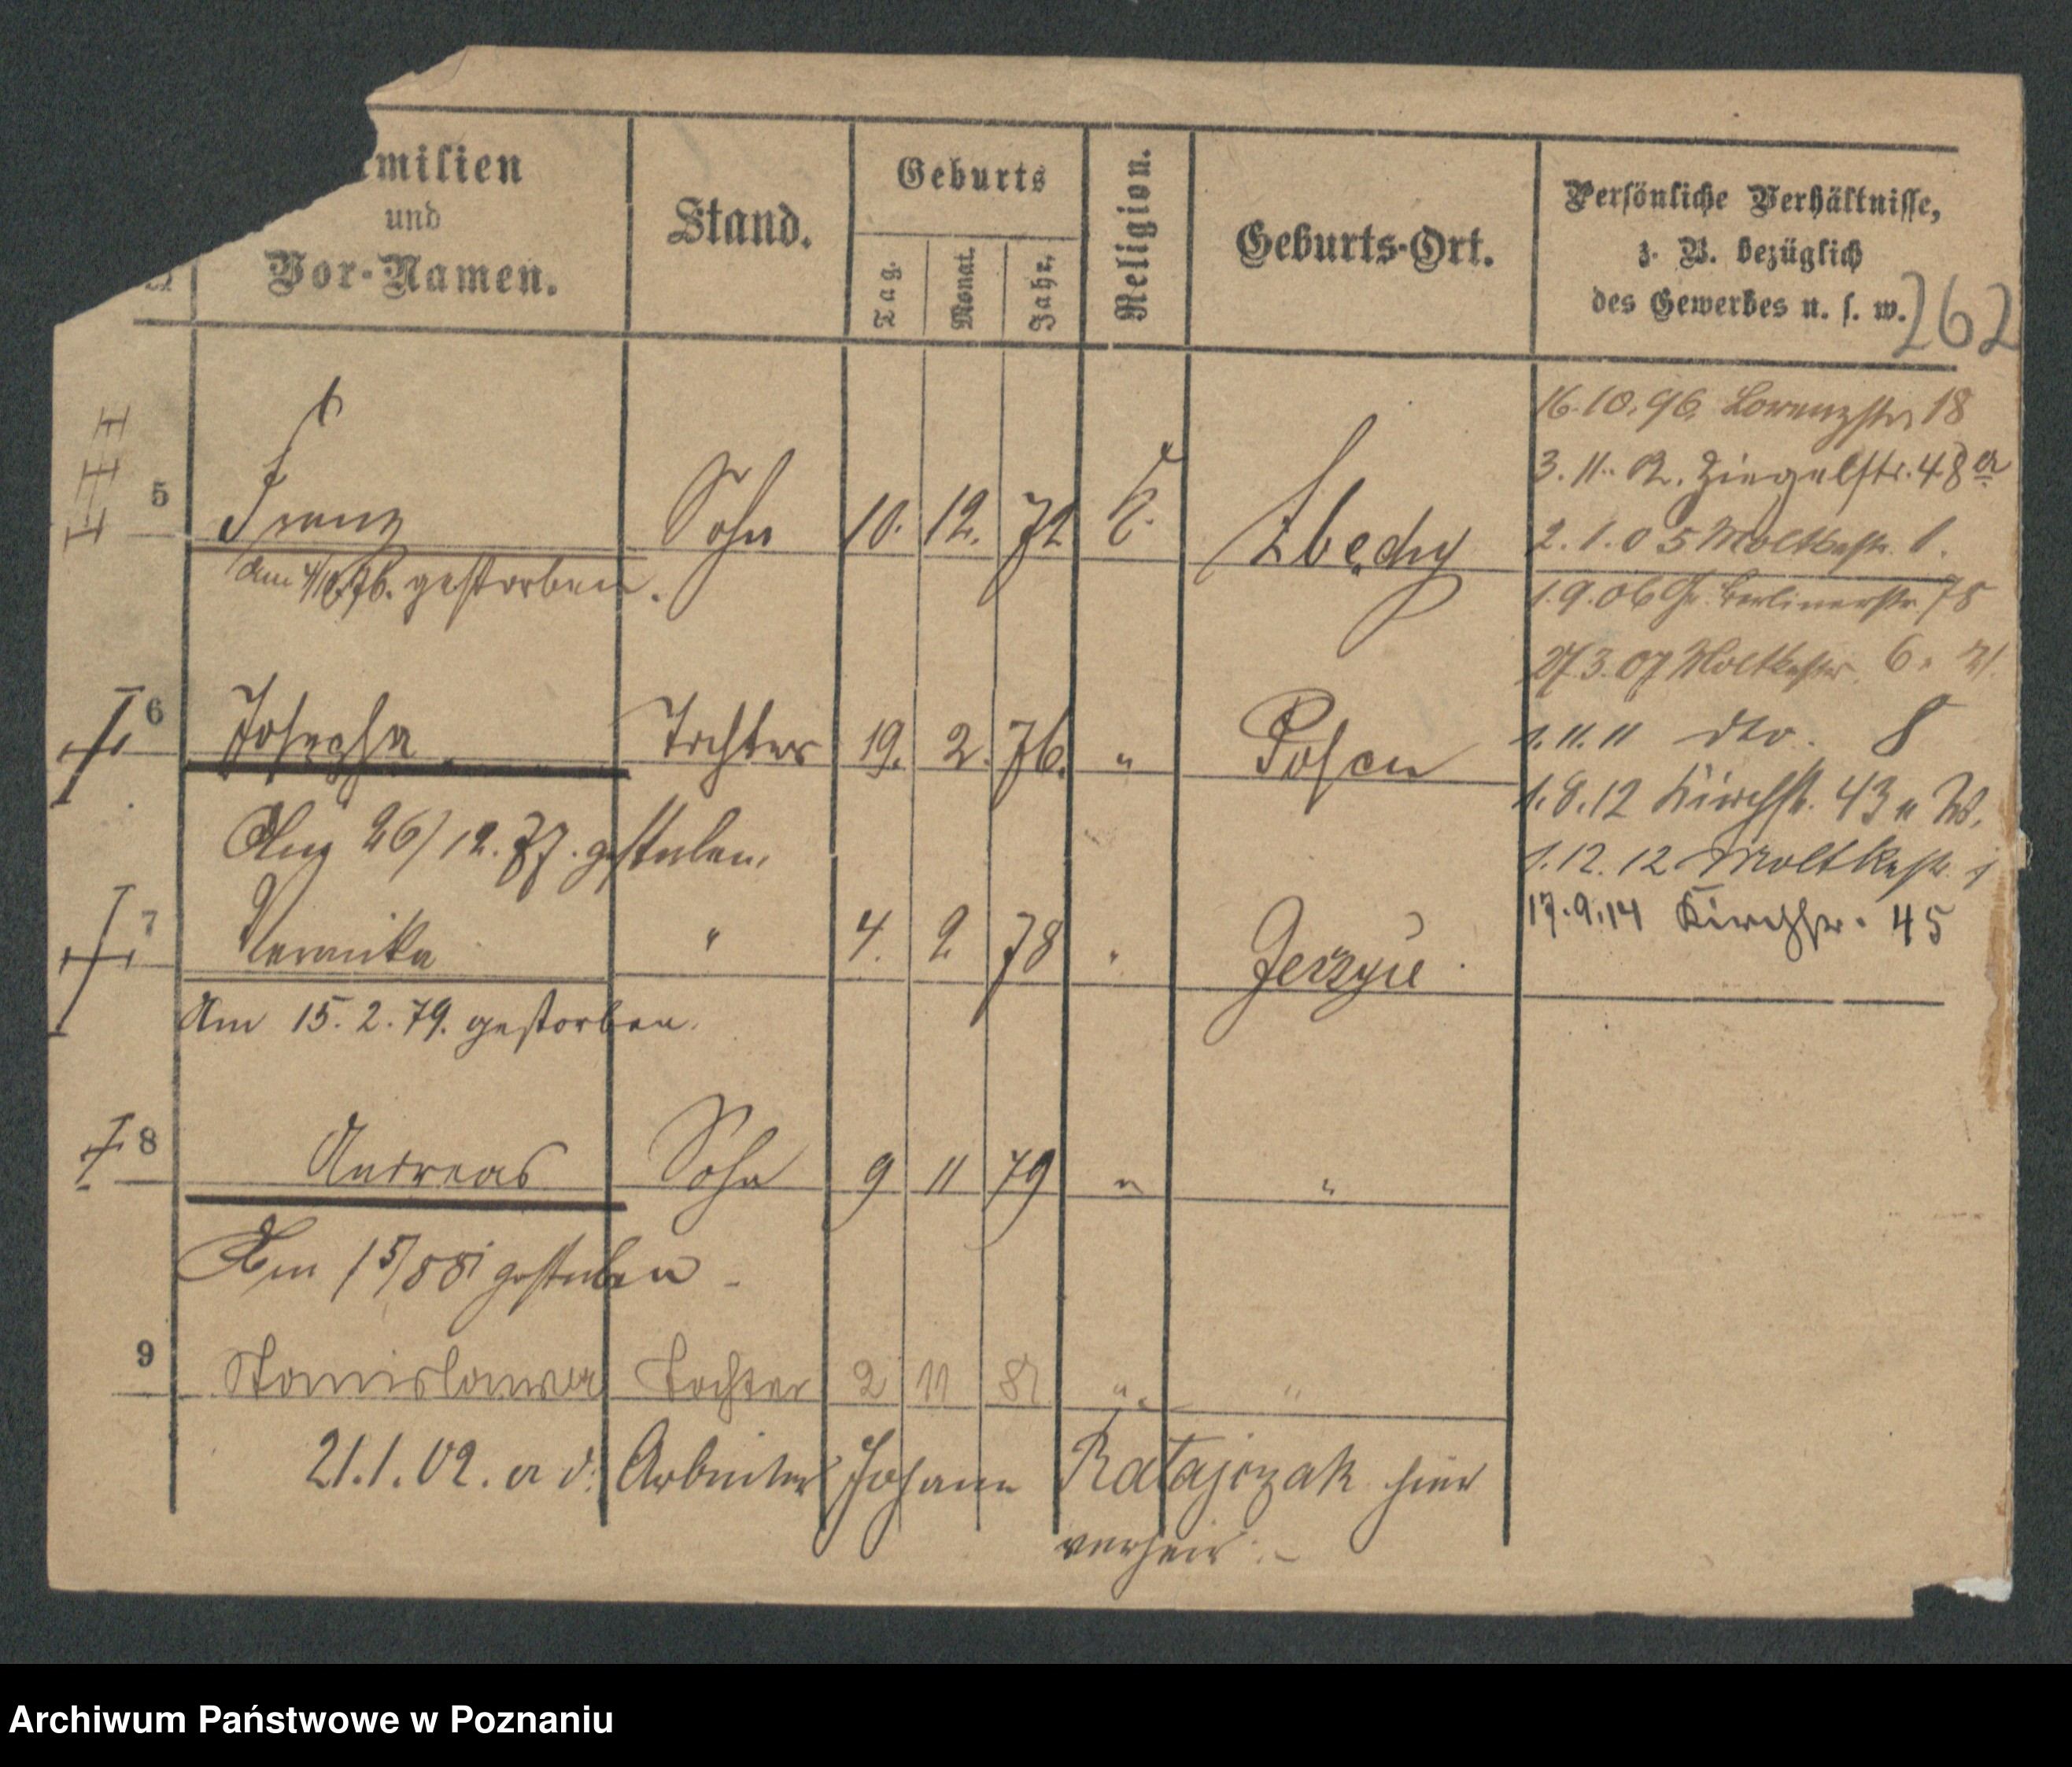 milien
und
Vor-Namen.
Stand.
Geburts
Tag.
Monat.
Jahr.
Religion.
Geburts-Ort.
Persönliche Verhältnisse,
z. B. bezüglich
des Gewerbes u. s. w.
262
5 Franz Sohn 10. 12. 72 k. Zbęchy
Am 4/10.76. gestorben.
6 Josepha Tochter 19. 2. 76. " Posen
Am 26/12.77. gestorben.
7 Veronika " 4. 2 78 " Jerzyce
Am 15. 2. 79. gestorben.
8 Andreas Sohn 9 11 79 " "
Am 1 5/88 gestorben
9 Stanislawa Tochter 2 11 81 " "
21.1.02. a d. Arbeiter Johann Ratajczak hier
verheir.
16.10.96. Lorenzstr 18
3.11. Ziegelstr. 48a
2.1.05 Moltkestr. 1.
1.9.06 Gr. Berlinerstr. 78
27.3.07 Moltkestr. 6.
1.11.11 dto. 8
1.8.12 Kirchstr. 43 W.
1.12.12 Moltkestr.
17.9.14 Kirchstr. 45
Archiwum Państwowe w Poznaniu